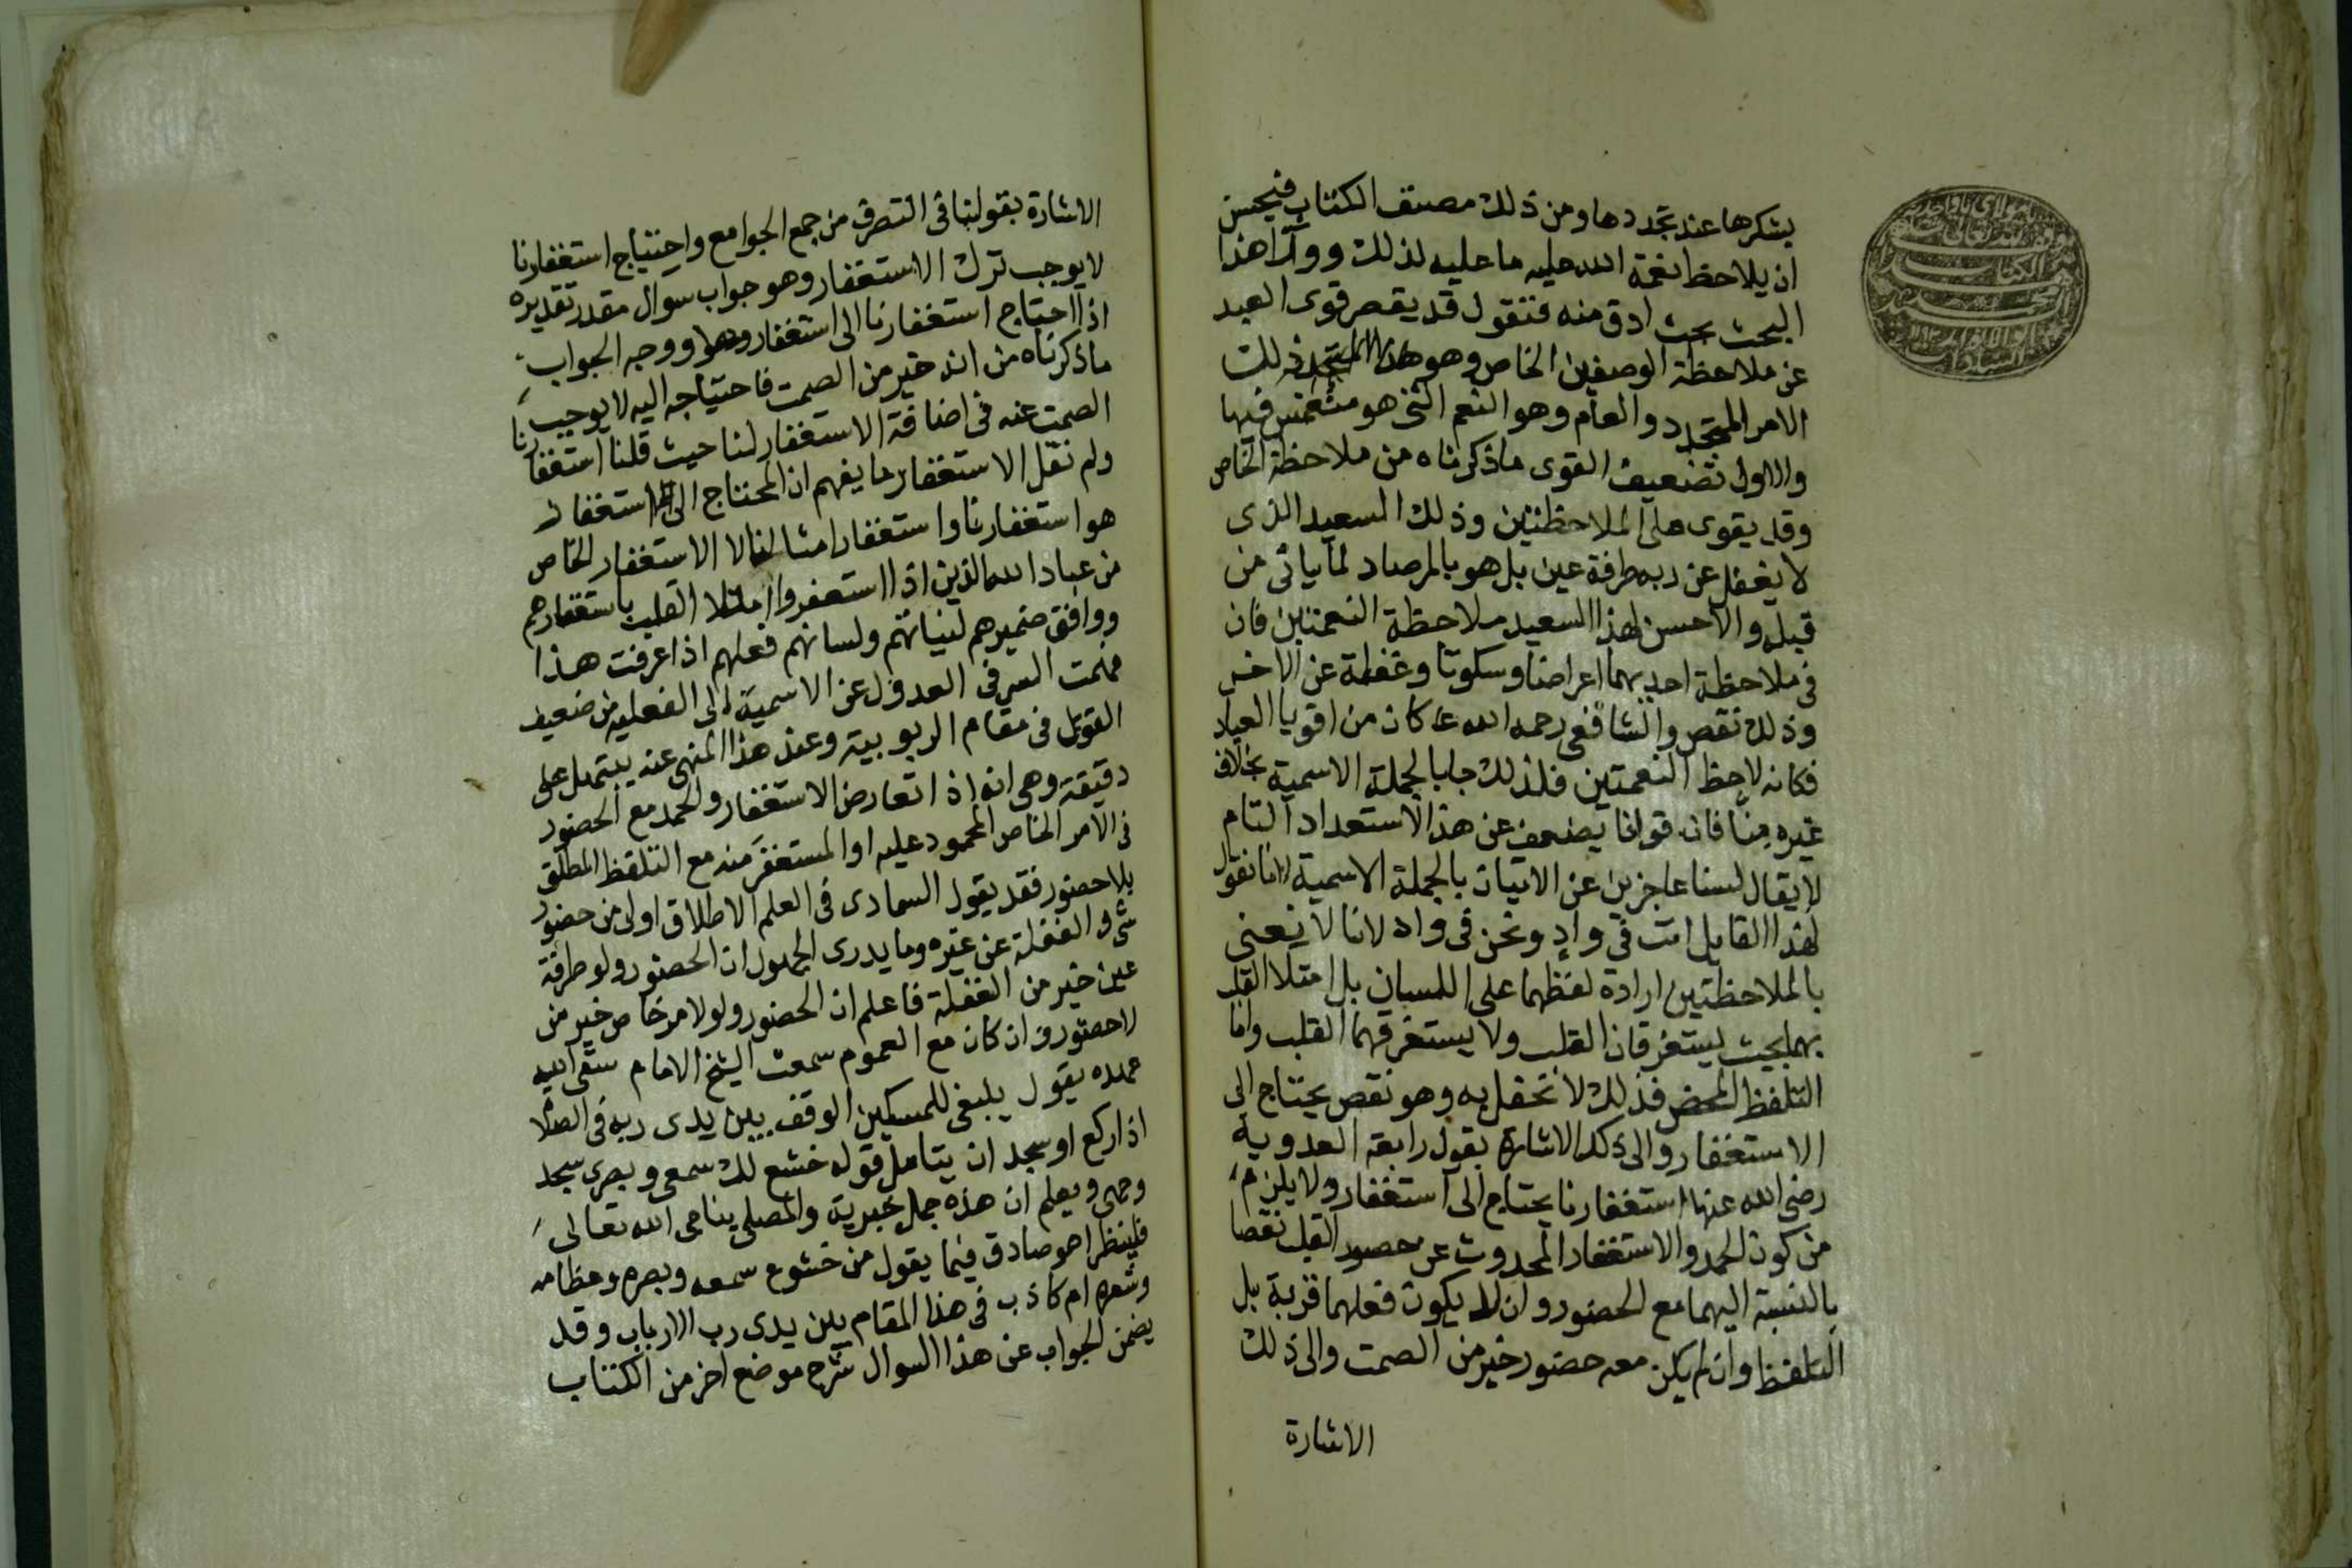 بشكرها عند تجددها ومن ذلك مصنف الكتاب فيحسن
ان يلاحظ نغمة الله عليه ما عليه لذلك وورآ هذا
البحث بحث ادق منه فنقول قد يقصر قوى العبد
عن ملاحظة الوصفين الخاص وهو هذا ذلك
الامر المتجدد والعام وهو النعم التى هو منغمس فيها
والاول تضعيف القوى ماذكرناه من ملاحظة الخاص
وقد يقوى على الملاحظتين وذلك السعيد الذى
لا يغفل عن ربه طرفة عين بل هو بالمرصاد لما ياتى من
قبله والاحسن لهذا السعيد ملاحظة النعمتين فان
فى ملاحظة احديهما اعراضا وسكوتا وغفلة عن الاخر
وذلك نقص والشافعى رحمه الله كان من اقويا العباد
فكانه لاحظ النعمتين فلذلك جا بالجملة الاسمية بخلاف
غيره منّا فان قوانا يضعف عن هذا الاستعداد التام
لا يقال لسنا عاجزين عن الاتيان بالجملة الاسمية لانا نقول
لهذا القايل انت فى وادٍ ونحن فى واد لانا لا نعنى
بالملاحظتين ارادة لفظهما على اللسان بل امتلا القلب
بهما بحيث يستغرقان القلب ولا يستغرقهما القلب واما
التلفظ المحض فذلك لا نحفل به وهو نقص يحتاج الى
الاستغفار والى ذلك الاشارة بقول رابعة العدوية
رضى الله عنها استغفارنا يحتاج الى استغفار ولا يلزم
من كون الحمد والاستغفار عن حضور القلب نقصا
بالنسبة اليهما مع الحضور وان لا يكون فعلهما قربة بل
التلفظ وان لم يكن معه حضور خير من الصمت والى ذلك
الاشارة
الاشارة بقولنا فى التصرف من جمع الجوامع واحتياج استغفارنا
لا يوجب ترك الاستغفار وهو جواب سوال مقدر تقديره
اذا احتاج استغفارنا الى استغفار ووجه الجواب
ماذكرناه من انه خير من الصمت فاحتياجه اليه لا يوجب
الصمت عنه فى اضافة الاستغفار لنا حيث قلنا استغفارنا
ولم نقل الاستغفار ما يفهم ان المحتاج الى استغفار
هو استغفارنا واستغفار امثالنا لا الاستغفار الخاص
من عباد الله الذين اذا استغفروا امتلا القلب باستغفارهم
ووافق ضميرهم لنياتهم ولسانهم فعلهم اذا عرفت هذا
فهمت السر فى العدول عن الاسمية الى الفعليه من ضعيف
القوى فى مقام الربوبية وعند هذا المنهى عنه يشتمل على
دقيقة وهى انه اذا تعارض الاستغفار والحمد مع الحضور
فى الامر الخاص المحمود عليه او المستغفر منه مع التلفظ المطلق
بلا حضور فقد يقول السمادى فى العلم الاطلاق اولى من حضور
شى والغفلة عن غيره وما يدرى الجهول ان الحضور ولو طرفة
عين خير من الغفلة فاعلم ان الحضور ولو لامر خاص خير من
لا حضور وان كان مع العموم سمعت الشيخ الامام سقى الله
عهده يقول ينبغى للمسكين الوقف بين يدى ربه فى الصلا
اذا ركع او سجد ان يتامل قوله خشع لك سمعى وبصرى سجد
وجهى ويعلم ان هذه جمل خبرية والمصلى يناجى الله تعالى
فلينظر اهو صادق فيما يقول من خشوع سمعه وبصره وعظامه
وشعره ام كاذب فى هذا المقام بين يدى رب الارباب وقد
يضمن الجواب عن هذا السوال شرح موضع اخر من الكتاب